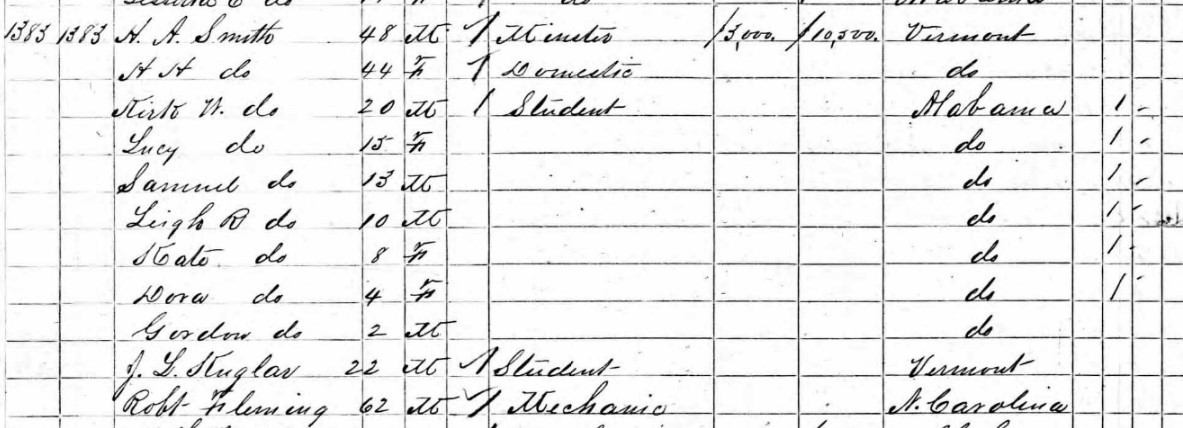 1383 1383 H. A. Smith 48 M 1 Minster 13,000. 10,500. Vermont
H H do 44 F 1 Domestic do
Kirk W. do 20 M 1 Student Alabama 1
Lucy do 15 F do 1
Samuel do 13 M do 1
Leigh R do 10 M do 1
Kate do 8 F do 1
Dora do 4 F do 1
Gordon do 2 M do
J. L. Kuglar 22 M 1 Student Vermont
Robt Fleming 62 M 1 Mechanic N. Carolina